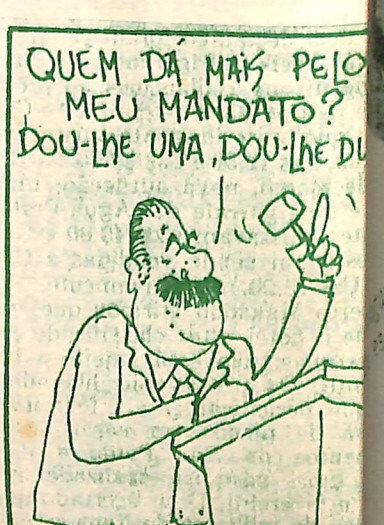 QUEM DÁ MAIS PELO
MEU MANDATO?
DOU-LHE UMA, DOU-LHE DU